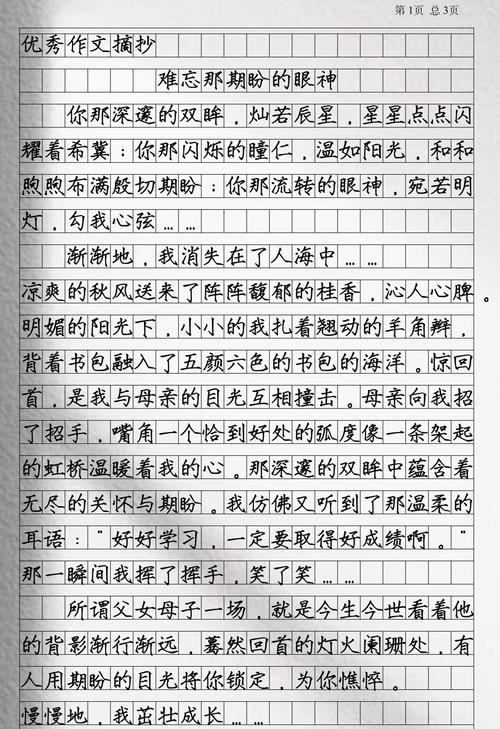 第1页 总3页
优秀作文摘抄
难忘那期盼的眼神
你那深邃的双眸，灿若辰星，星星点点闪
耀着希冀：你那闪烁的瞳仁，温如阳光，和和
煦煦布满殷切期盼：你那流转的眼神，宛若明
灯，勾我心弦……
渐渐地，我消失在了人海中……
凉爽的秋风送来了阵阵馥郁的桂香，沁人心脾。
明媚的阳光下，小小的我扎着翘动的羊角辫，
背着书包融入了五颜六色的书包的海洋。惊回
首，是我与母亲的目光互相撞击。母亲向我招
了招手，嘴角一个恰到好处的弧度像一条架起
的虹桥温暖着我的心。那深邃的双眸中蕴含着
无尽的关怀与期盼。我仿佛又听到了那温柔的
耳语："好好学习，一定要取得好成绩啊。"
那一瞬间我挥了挥手，笑了笑……
所谓父女母子一场，就是今生今世看着他
的背影渐行渐远，蓦然回首的灯火阑珊处，有
人用期盼的目光将你锁定，为你憔悴。
慢慢地，我茁壮成长……